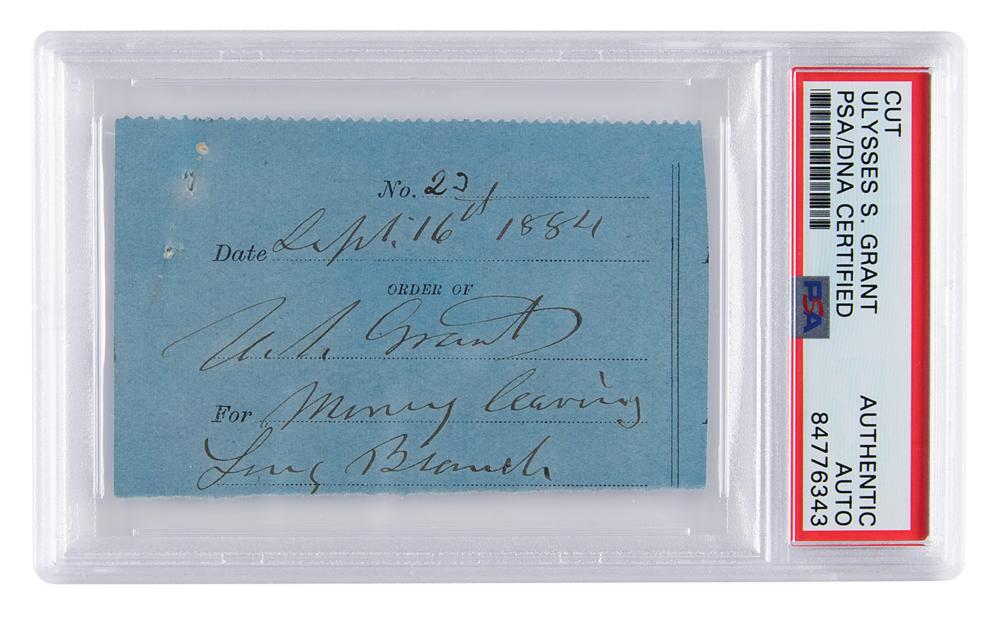 No. 23
Date Sept. 16th 1884
ORDER OF
U. S. Grant
For Money leaving
Long Branch
CUT
ULYSSES S. GRANT
PSA/DNA CERTIFIED
PSA
AUTHENTIC
AUTO
84776343